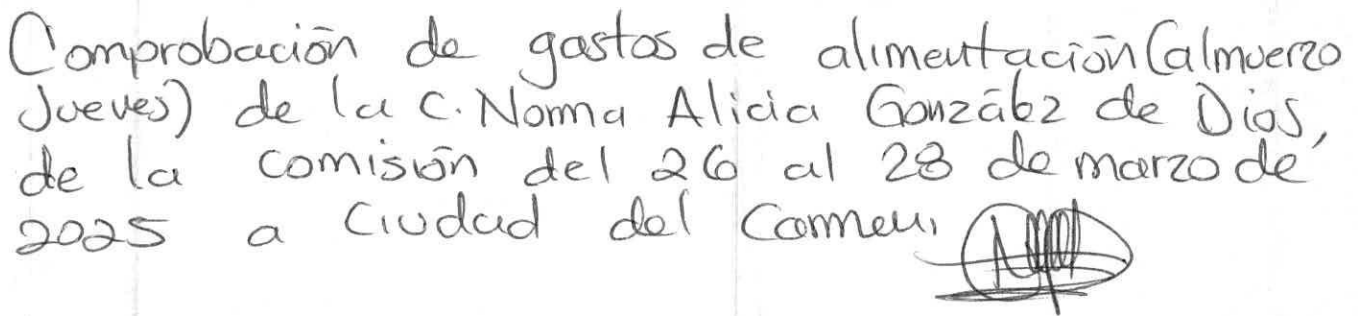 Comprobación de gastos de alimentación (almuerzo
Jueves) de la C. Norma Alicia González de Dios,
de la comisión del 26 al 28 de marzo de
2025 a Ciudad del Carmen.